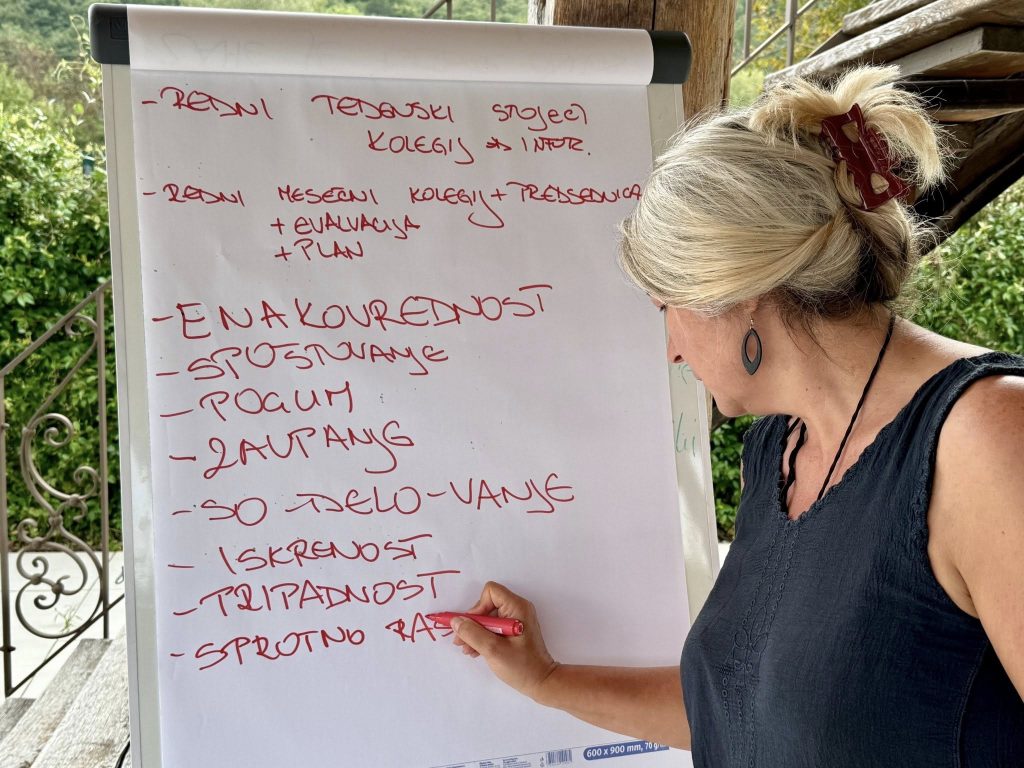 - REDNI TEDENSKI STOJEČI
KOLEGIJ => INFOR.
- REDNI MESEČNI KOLEGIJ + PREDSEDNICA
+ EVALVACIJA
+ PLAN
- ENAKOVREDNOST
- SPOŠTOVANJE
- POGUM
- ZAUPANJE
- SO-DELO-VANJE
- ISKRENOST
- PRIPADNOST
- SPROTNO RAS
600 x 900 mm, 70 gr